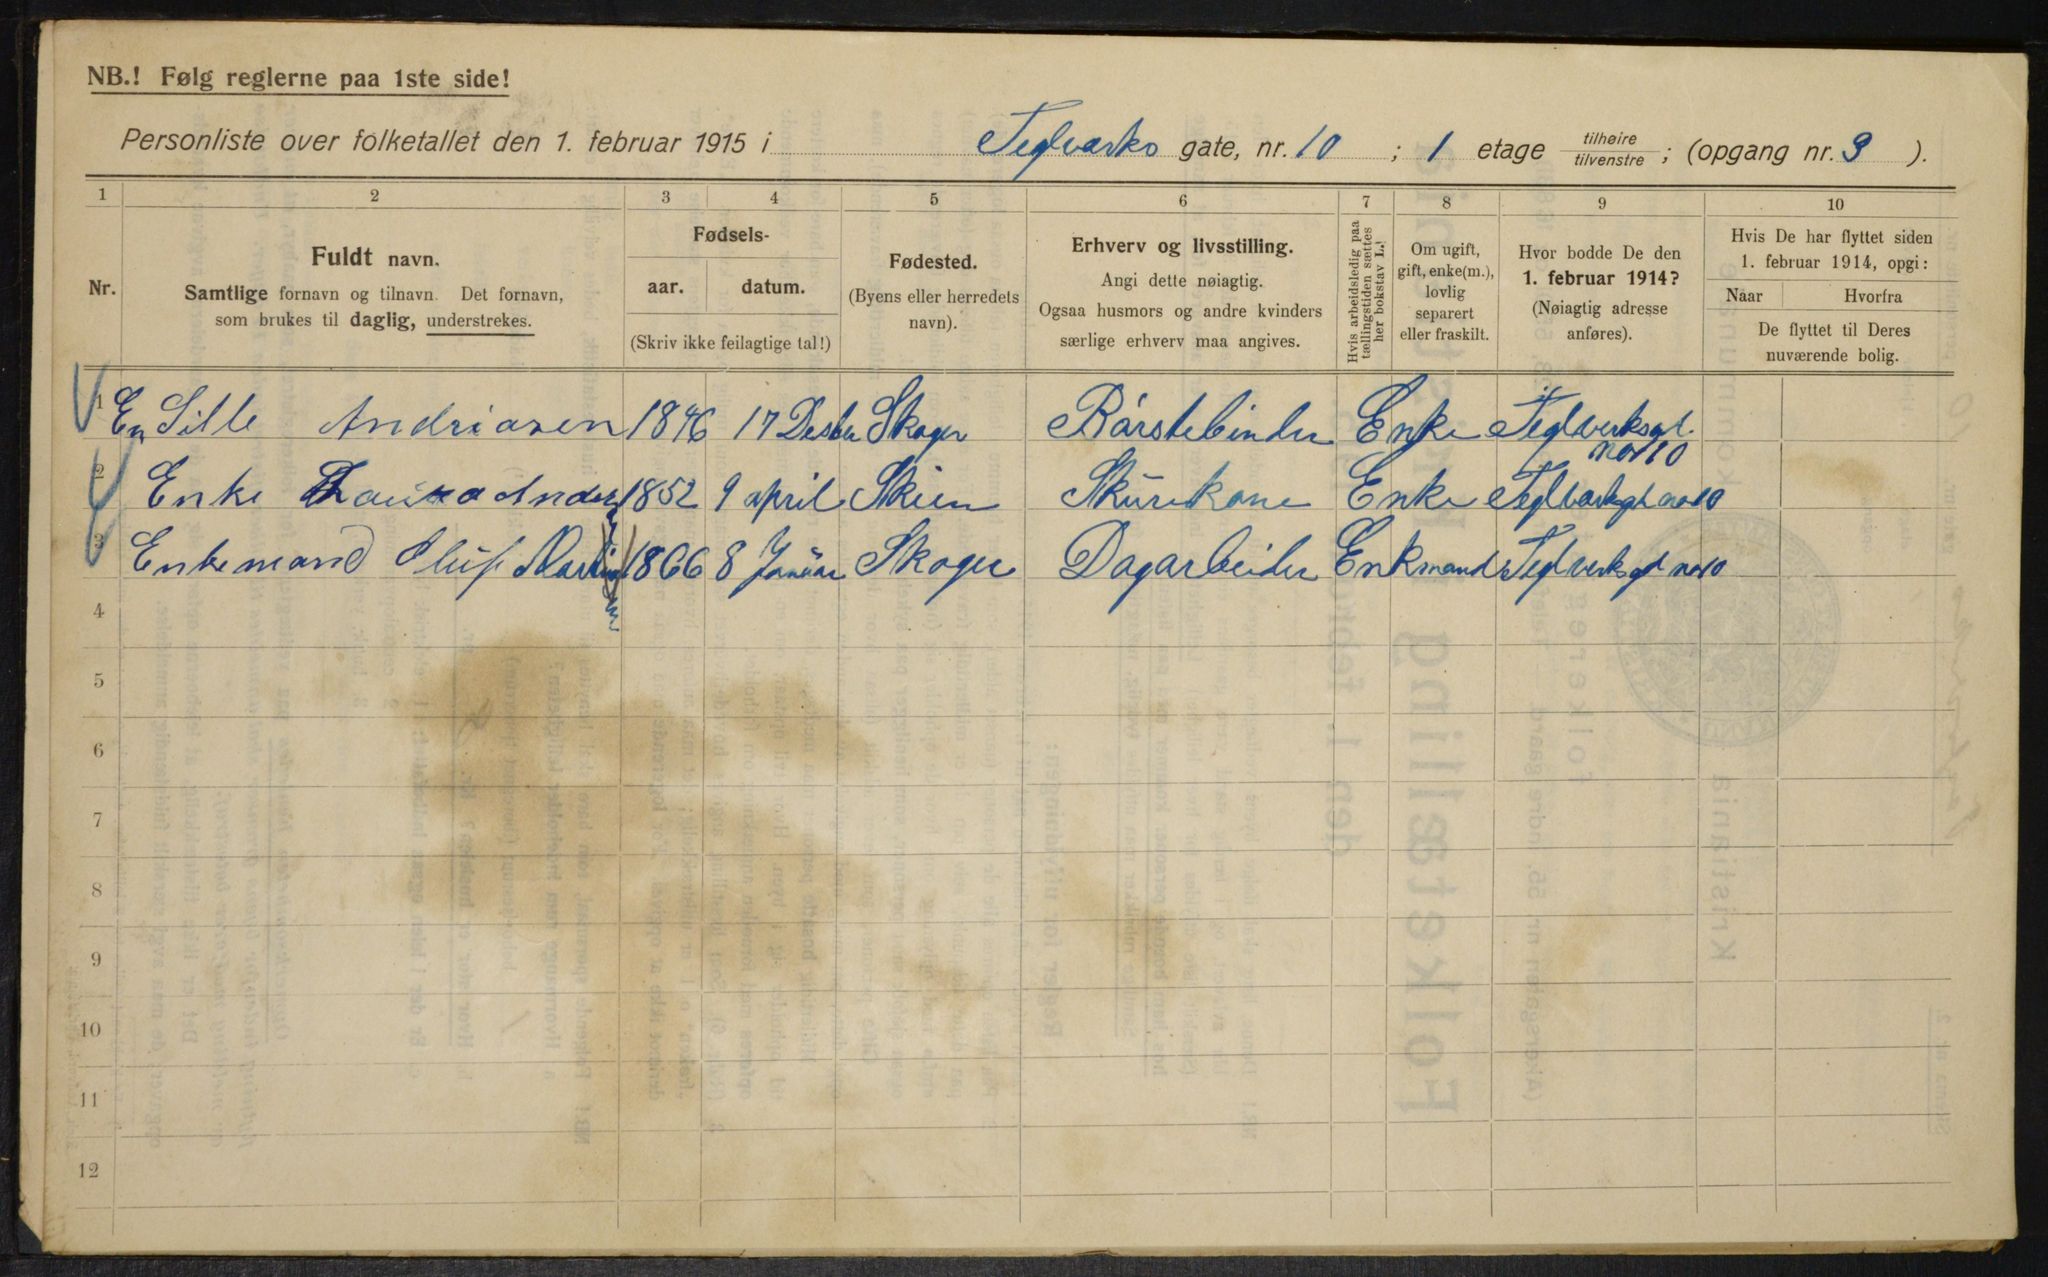 NB.! Følg reglerne paa 1ste side!
Personliste over folketallet den 1. februar 1915 i Teglverks gate, nr. 10 ; 1 etage tilhøire/tilvenstre ; (opgang nr. 3 ).
1 2 3 4 5 6 7 8 9 10
Nr.
Fuldt navn.
Samtlige fornavn og tilnavn. Det fornavn,
som brukes til daglig, understrekes.
Fødsels-
aar. datum.
(Skriv ikke feilagtige tal!)
Fødested.
(Byens eller herredets
navn).
Erhverv og livsstilling.
Angi dette nøiagtig.
Ogsaa husmors og andre kvinders
særlige erhverv maa angives.
Hvis arbeidsledig paa
tællingstiden sættes
her bokstav L.!
Om ugift,
gift, enke(m.),
lovlig
separert
eller fraskilt.
Hvor bodde De den
1. februar 1914?
(Nøiagtig adresse
anføres).
Hvis De har flyttet siden
1. februar 1914, opgi:
Naar Hvorfra
De flyttet til Deres
nuværende bolig.
1 En Sille Andriasen 1846 17 Desbr Skoger Börstebinder Enke Teglverksgt.
no 10
2 Enke Laura Anders 1852 9 april Skien Skurekone Enke Teglverksgt no 10
3 Enkemand Oluf Martin 1866 8 Januar Skoger Dagarbeider Enkmand Teglverksgt no 10
4
5
6
7
8
9
10
11
12